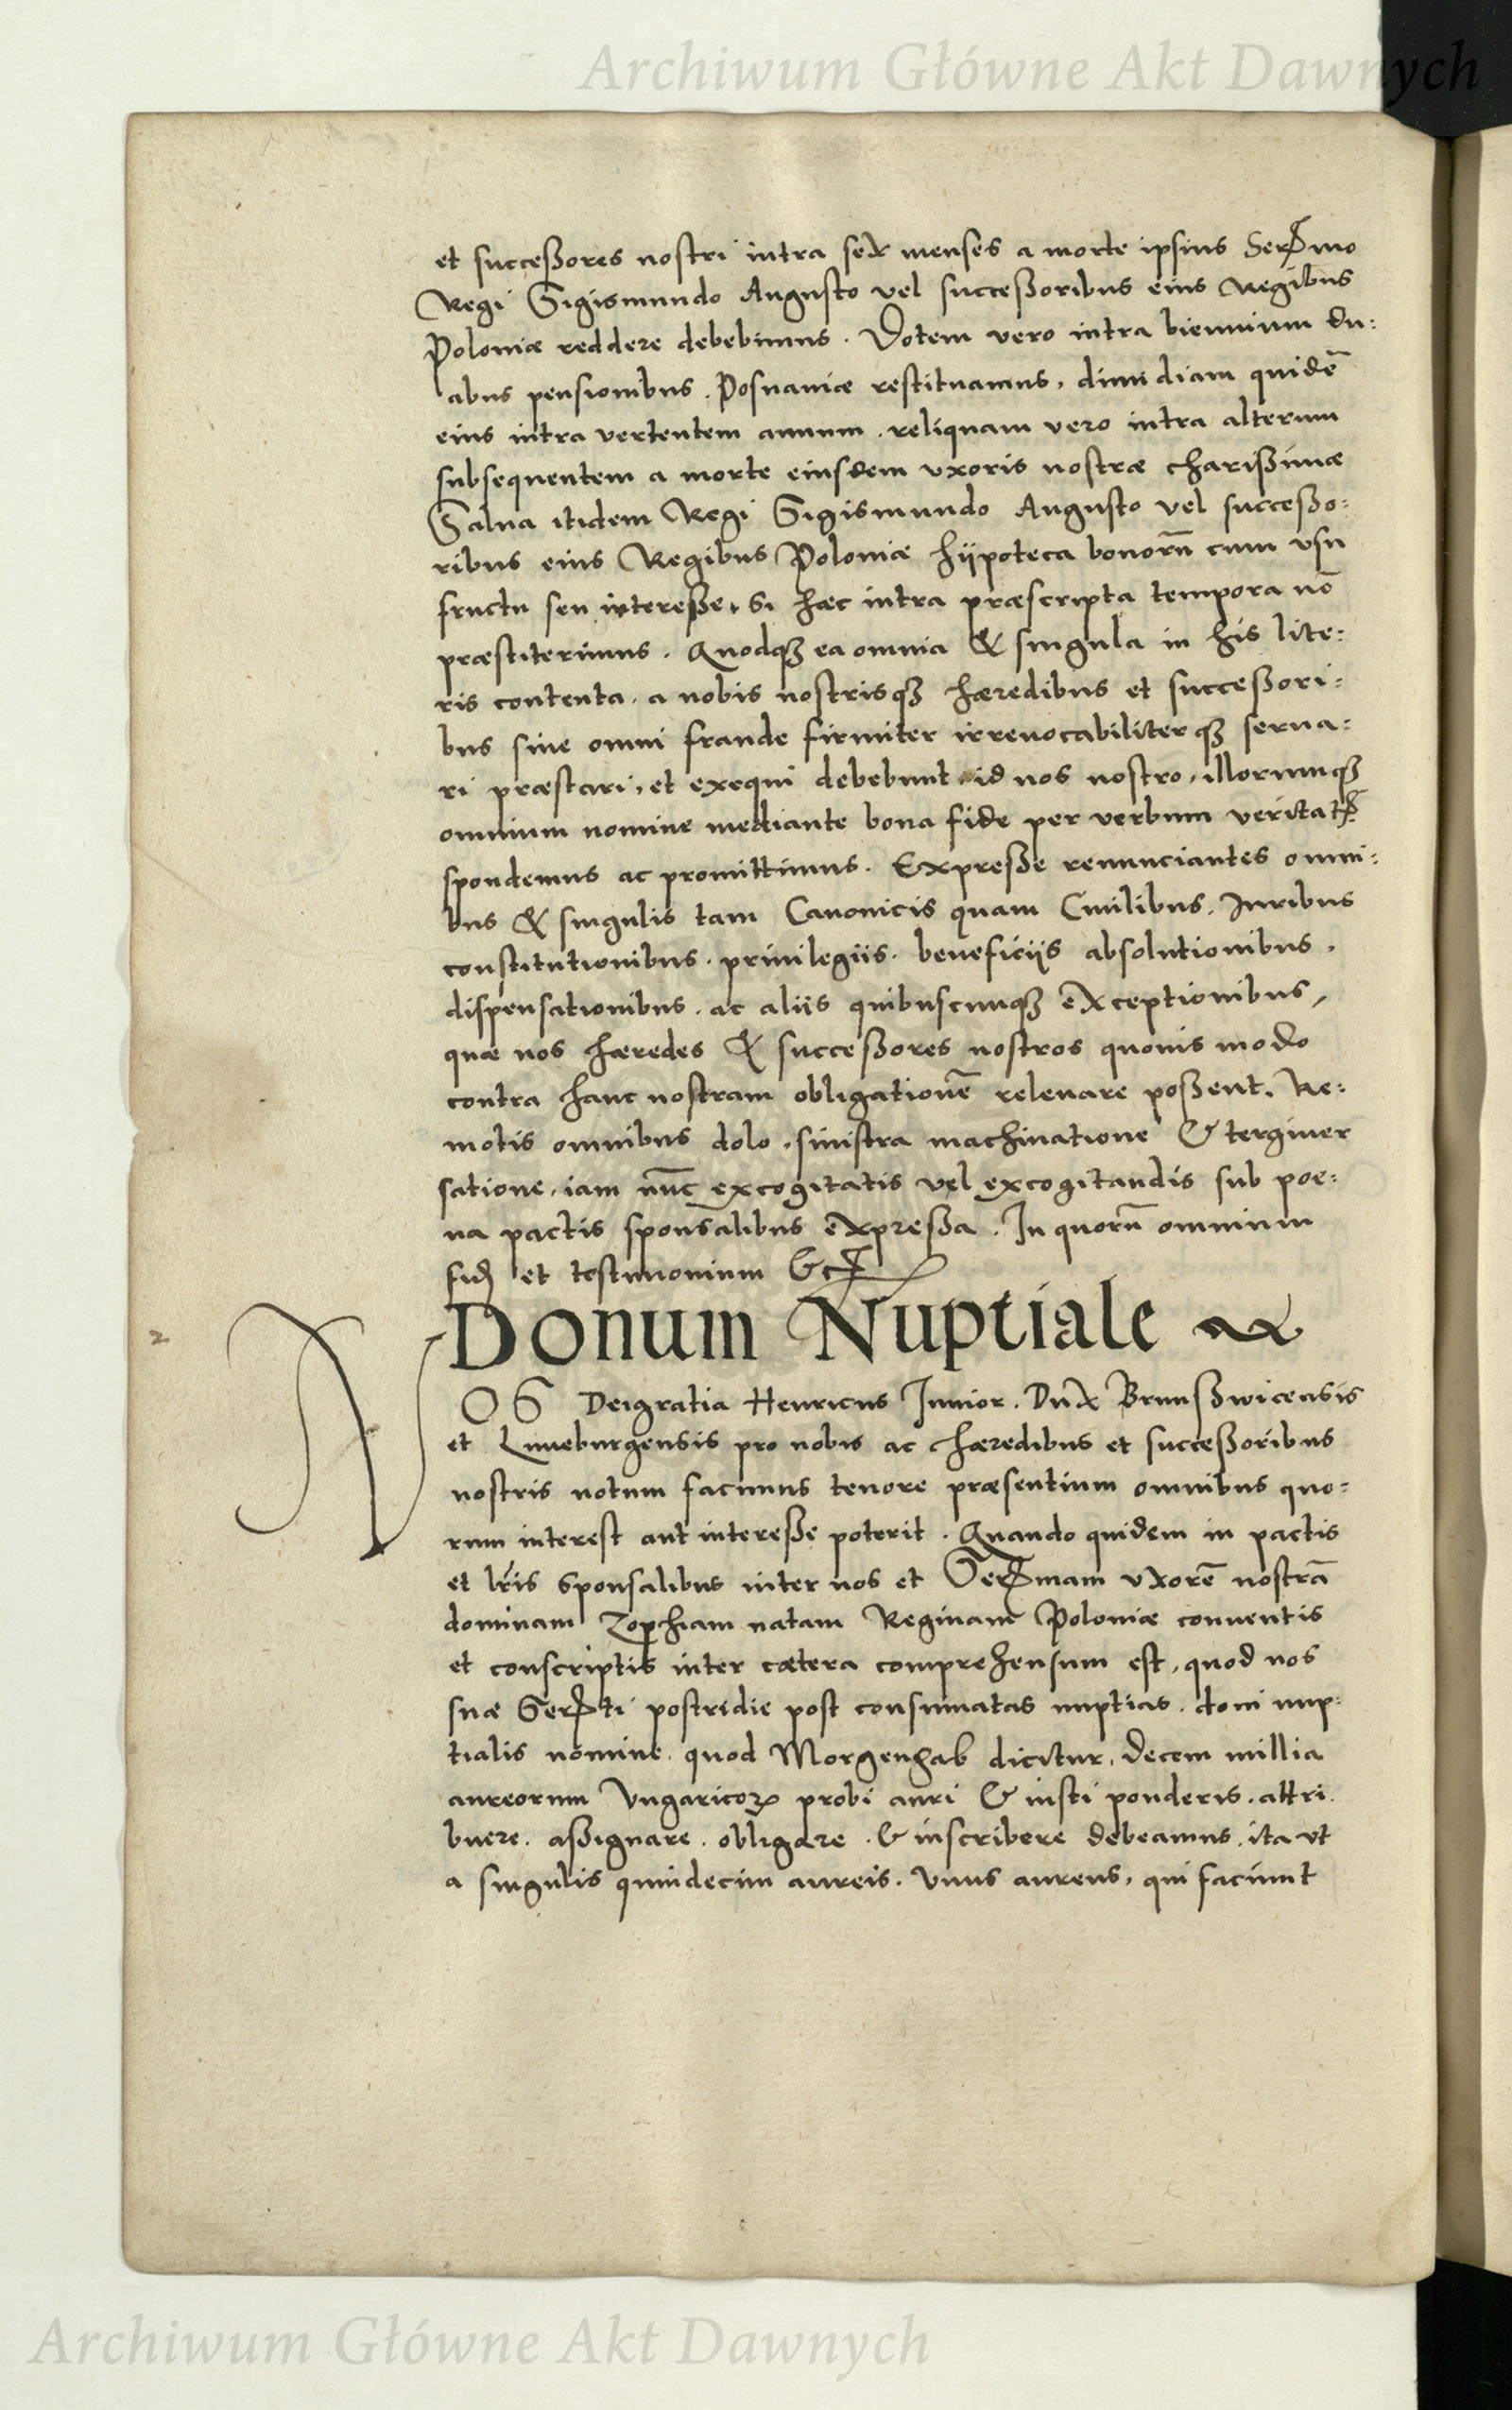 Archiwum Główne Akt Dawnych
et successores nostri intra sex menses a morte ipsius Sermo
Regi Sigismundo Augusto vel successoribus eius Regibus
Poloniæ reddere debebimus. Dotem vero intra biennium du:
abus pensionibus. Posnaniæ restituamus, dimidiam quidē
eius intra vertentem annum. reliquam vero intra alterum
subsequentem a morte eiusdem uxoris nostræ charissimæ
Salua itidem Regi Sigismundo Augusto vel successo:
ribus eius Regibus Poloniæ hijpoteca bonorū cum vsu
fructu seu interesse, si hæc intra præscripta tempora nō
præstiterimus. Quodq3 ea omnia & singula in his lite:
ris contenta, a nobis nostrisq3 hæredibus et successori:
bus sine omni fraude firmiter irreuocabiliterq3 serua:
ri præstari, et exequi debebunt id nos nostro, illorumq3
omnium nomine mediante bona fide per verbum veritatꝭ
spondemus ac promittimus. Expresse renunciantes omni:
bus & singulis tam Canonicis quam Ciuilibus. Iuribus
constitutionibus. priuilegiis. beneficijs absolutionibus,
dispensationibus. ac aliis quibuscunq3 exceptionibus,
quæ nos hæredes & successores nostros quouis modo
contra hanc nostram obligationē releuare possent. Re:
motis omnibus dolo, sinistra machinatione & tergiuer
satione, iam nūc excogitatis vel excogitandis sub poe:
na pactis sponsalibus expressa. In quorū omnium
fidē et testimonium &c
2
Donum Nuptiale
NOS Dei gratia Henricus Iunior. Dux Brunsswicensis
et Luneburgensis pro nobis ac hæredibus et successoribus
nostris notum facimus tenore præsentium omnibus quo:
rum interest aut interesse poterit. Quando quidem in pactis
et lris sponsalibus inter nos et Sermam uxorē nostrā
dominam Zophiam natam Reginam Poloniæ conuentis
et conscriptis inter cætera comprehensum est, quod nos
suæ Serti postridie post consumatas nuptias. doni nup:
tialis nomine. quod Morgengab dicitur, decem millia
aureorum Vngaricoꝝ probi auri & iusti ponderis. attri.
buere. assignare. obligare. & inscribere debeamus. ita vt
a singulis quindecim aureis. Vnus aureus, qui faciunt
Archiwum Główne Akt Dawnych